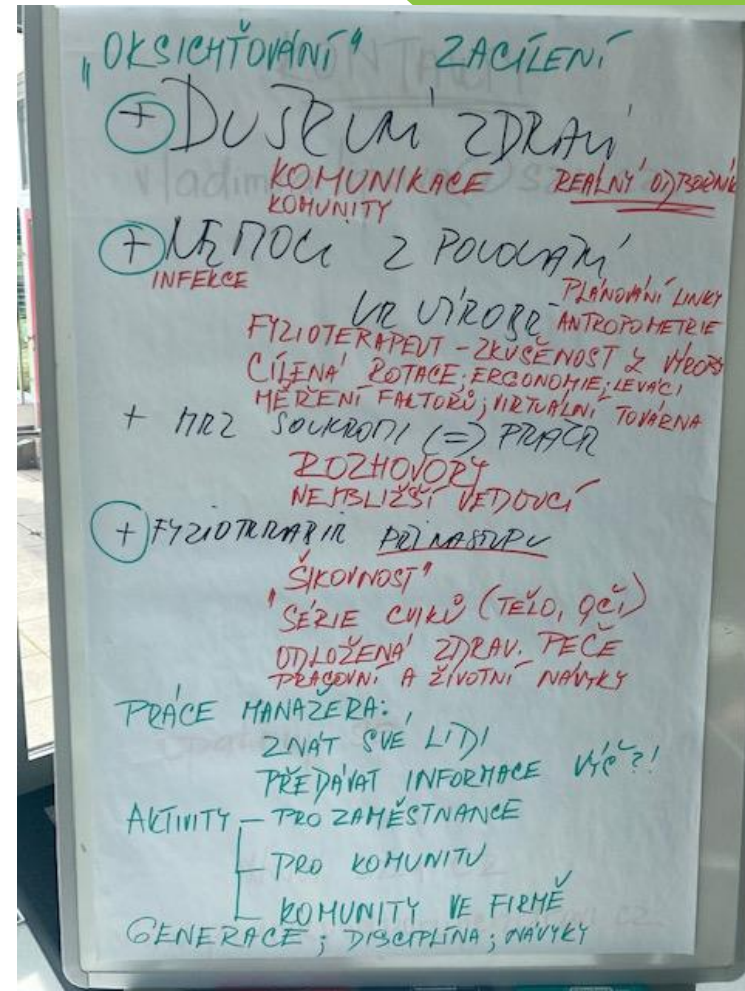 „OKSICHŤOVÁNÍ“ ZACÍLENÍ
+ DUŠEVNÍ ZDRAVÍ
KOMUNIKACE REÁLNÝ ODBORNÍK
KOMUNITY
+ NEMOCI Z POVOLÁNÍ
INFEKCE
PLÁNOVÁNÍ LINKY
VE VÝROBĚ ANTROPOMETRIE
FYZIOTERAPEUT - ZKUŠENOST Z VÝROBY
CÍLENÁ ROTACE; ERGONOMIE; LEVÁCI
MĚŘENÍ FAKTORŮ; VIRTUÁLNÍ TOVÁRNA
+ MEZ SOUKROMÍ (=) PRÁCE
ROZHOVORY
NEJBLIŽŠÍ VEDOUCÍ
+ FYZIOTERAPIE PŘI NÁSTUPU
„ŠIKOVNOST“
SÉRIE CVIKŮ (TĚLO, OČI)
ODLOŽENÁ ZDRAV. PÉČE
PRACOVNÍ A ŽIVOTNÍ NÁVYKY
PRÁCE MANAŽERA:
ZNÁT SVÉ LIDI
PŘEDÁVAT INFORMACE VÝŠ?!
AKTIVITY – PRO ZAMĚSTNANCE
– PRO KOMUNITU
– KOMUNITY VE FIRMĚ
GENERACE; DISCIPLÍNA; NÁVYKY